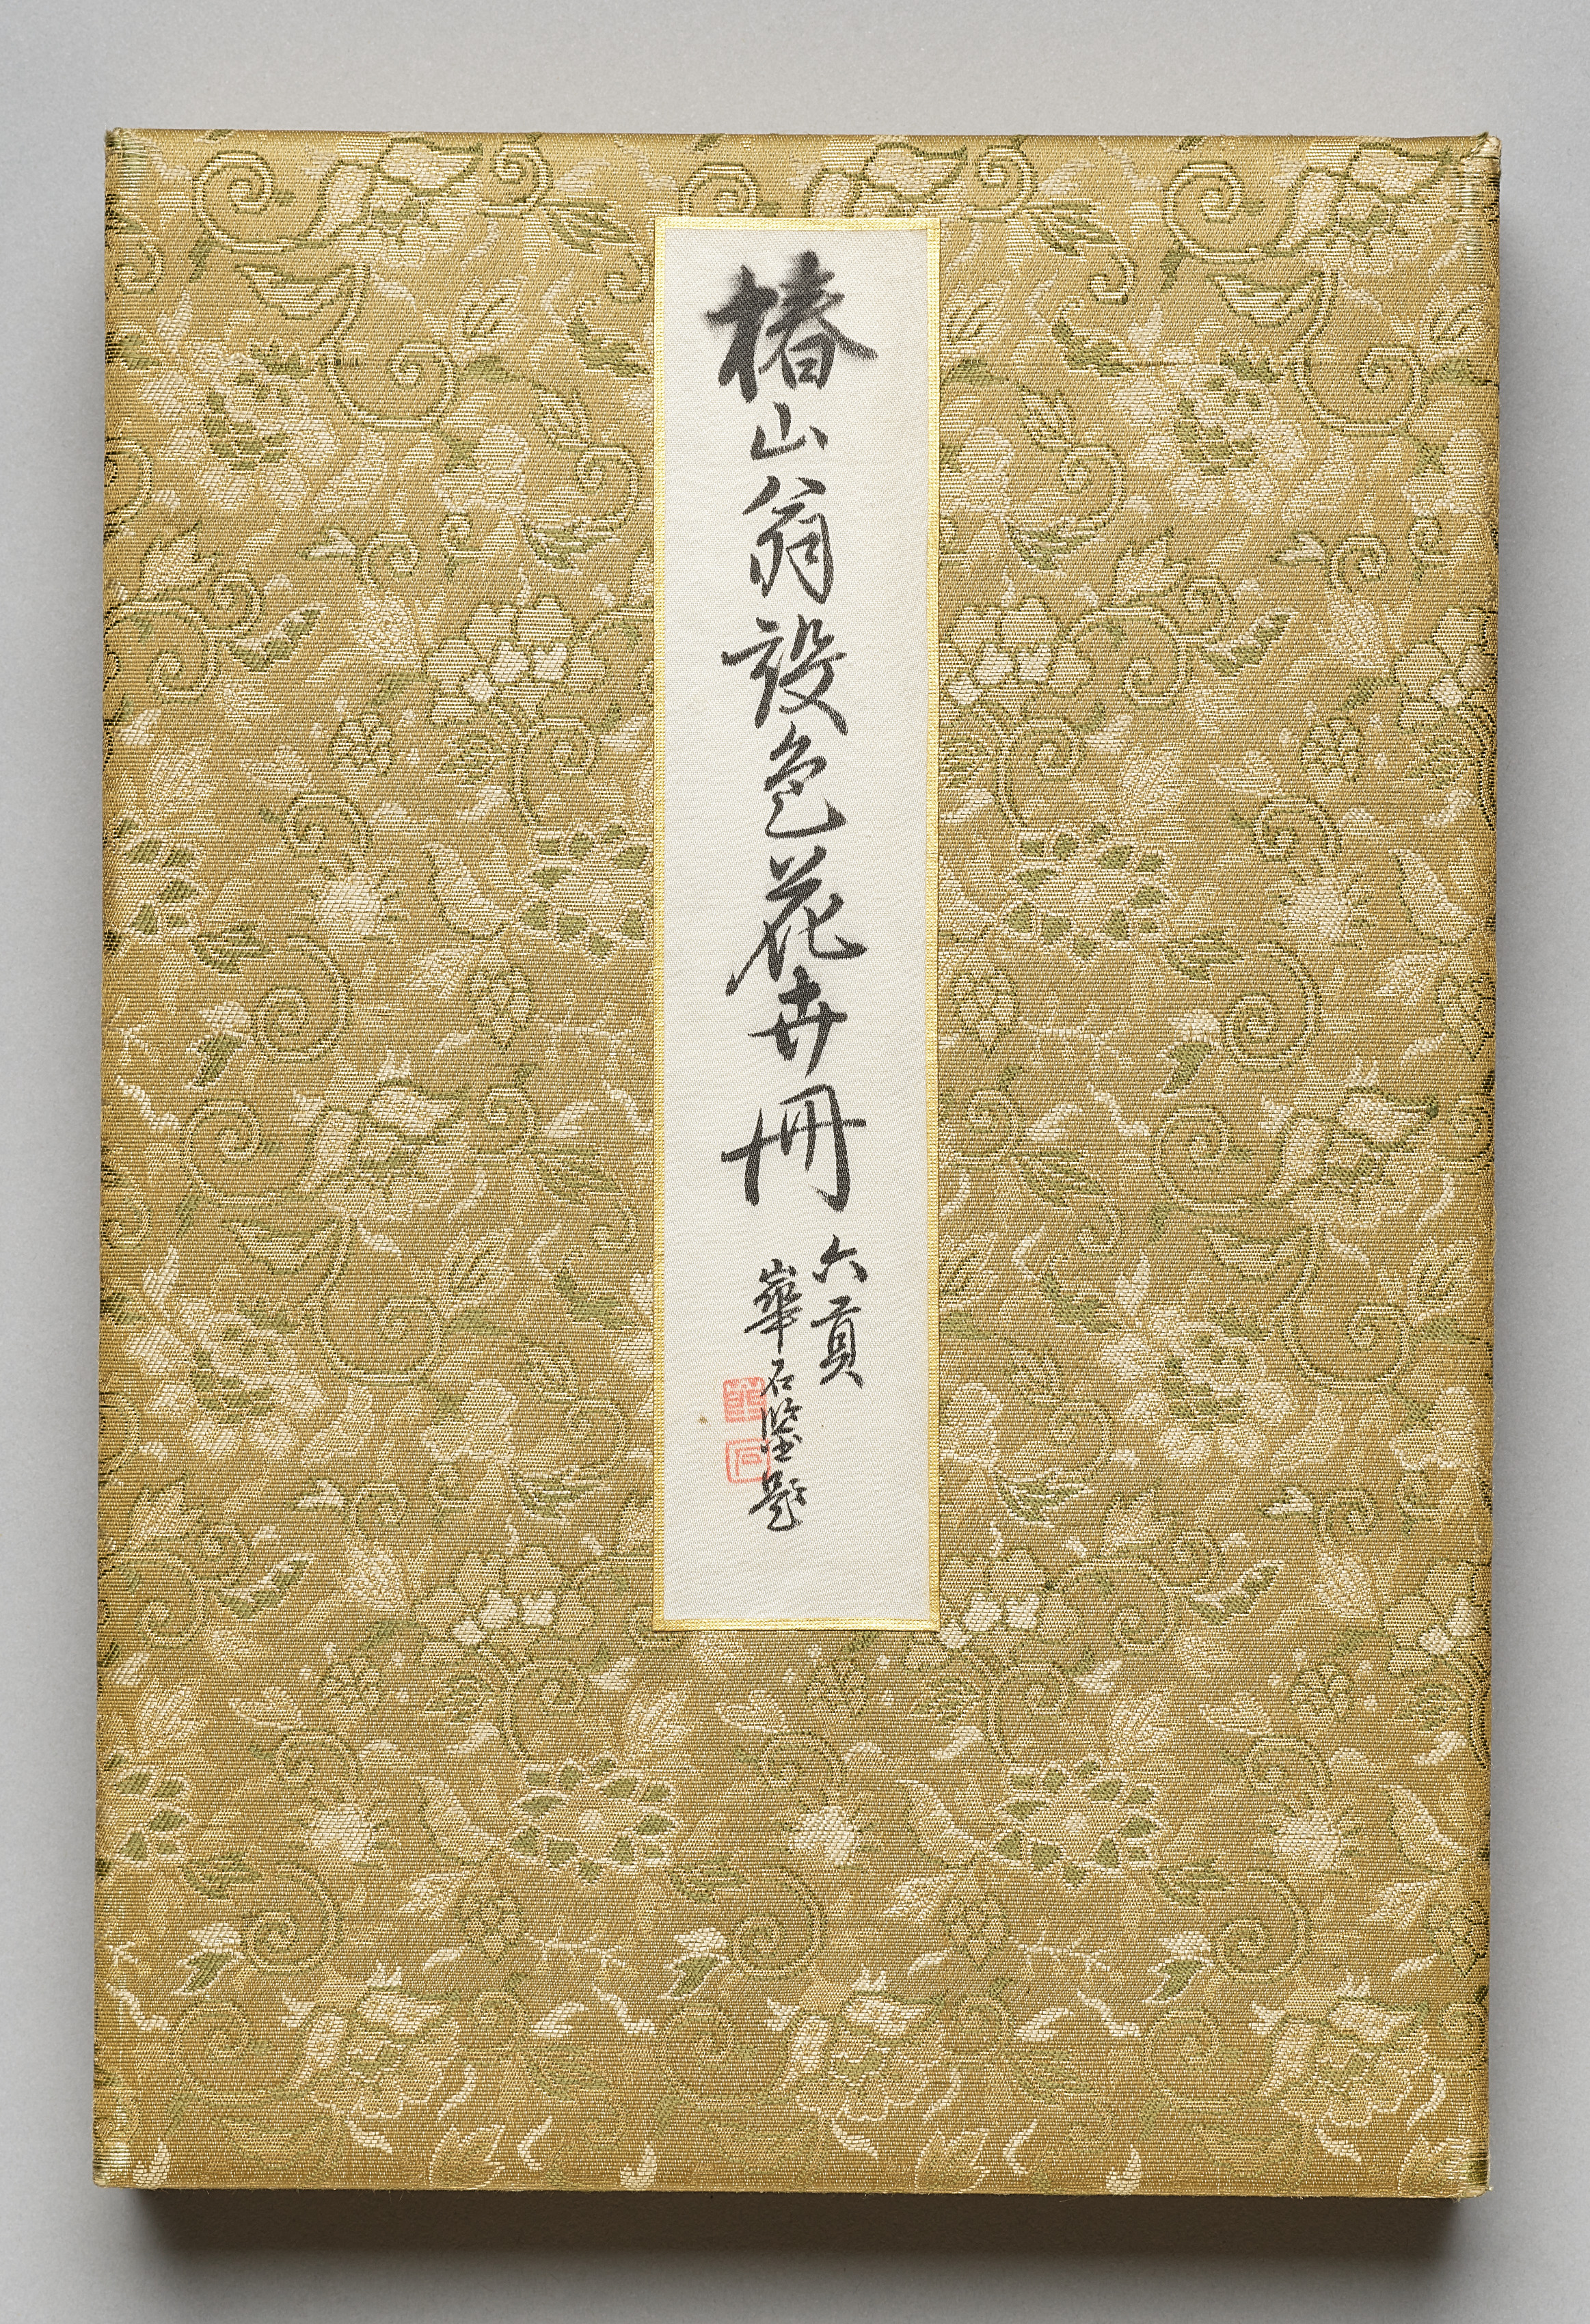 椿山翁設色花卉冊
六頁
崋石鑒題